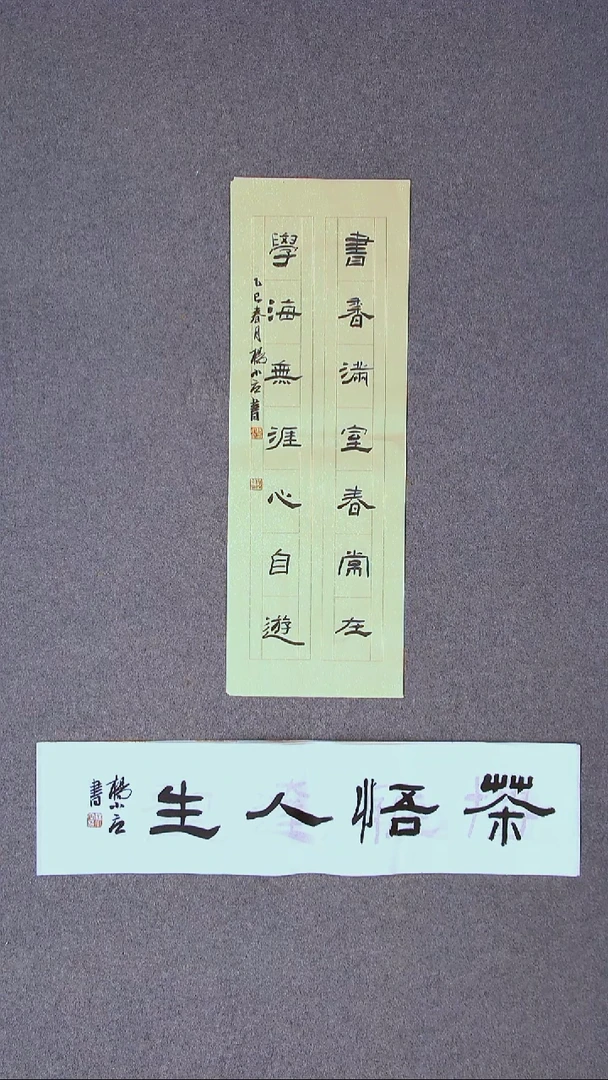 書香滿室春常在
學海無涯心自遊
乙巳春月楊小立書
茶悟人生
楊小立
書